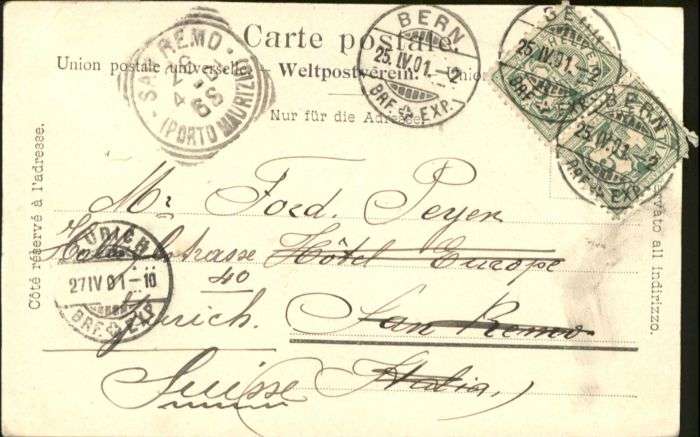 Carte postale.
Union postale universelle. – Weltpostverein. – Union
Nur für die Adresse.
Côté réservé à l'adresse.
SAN REMO
(PORTO MAURIZIO)
BERN
25.IV.01.–2
BRF. EXP.
BERN
25.IV.01.–2
BRF. EXP.
BERN
25.IV.01.–2
BRF. EXP.
Mr Ferd. Peyer
Hôtel Europe
40
Zürich. San Remo
Suisse Italia
ZÜRICH
27 IV 01 –10
BRF. EXP.
all indirizzo.